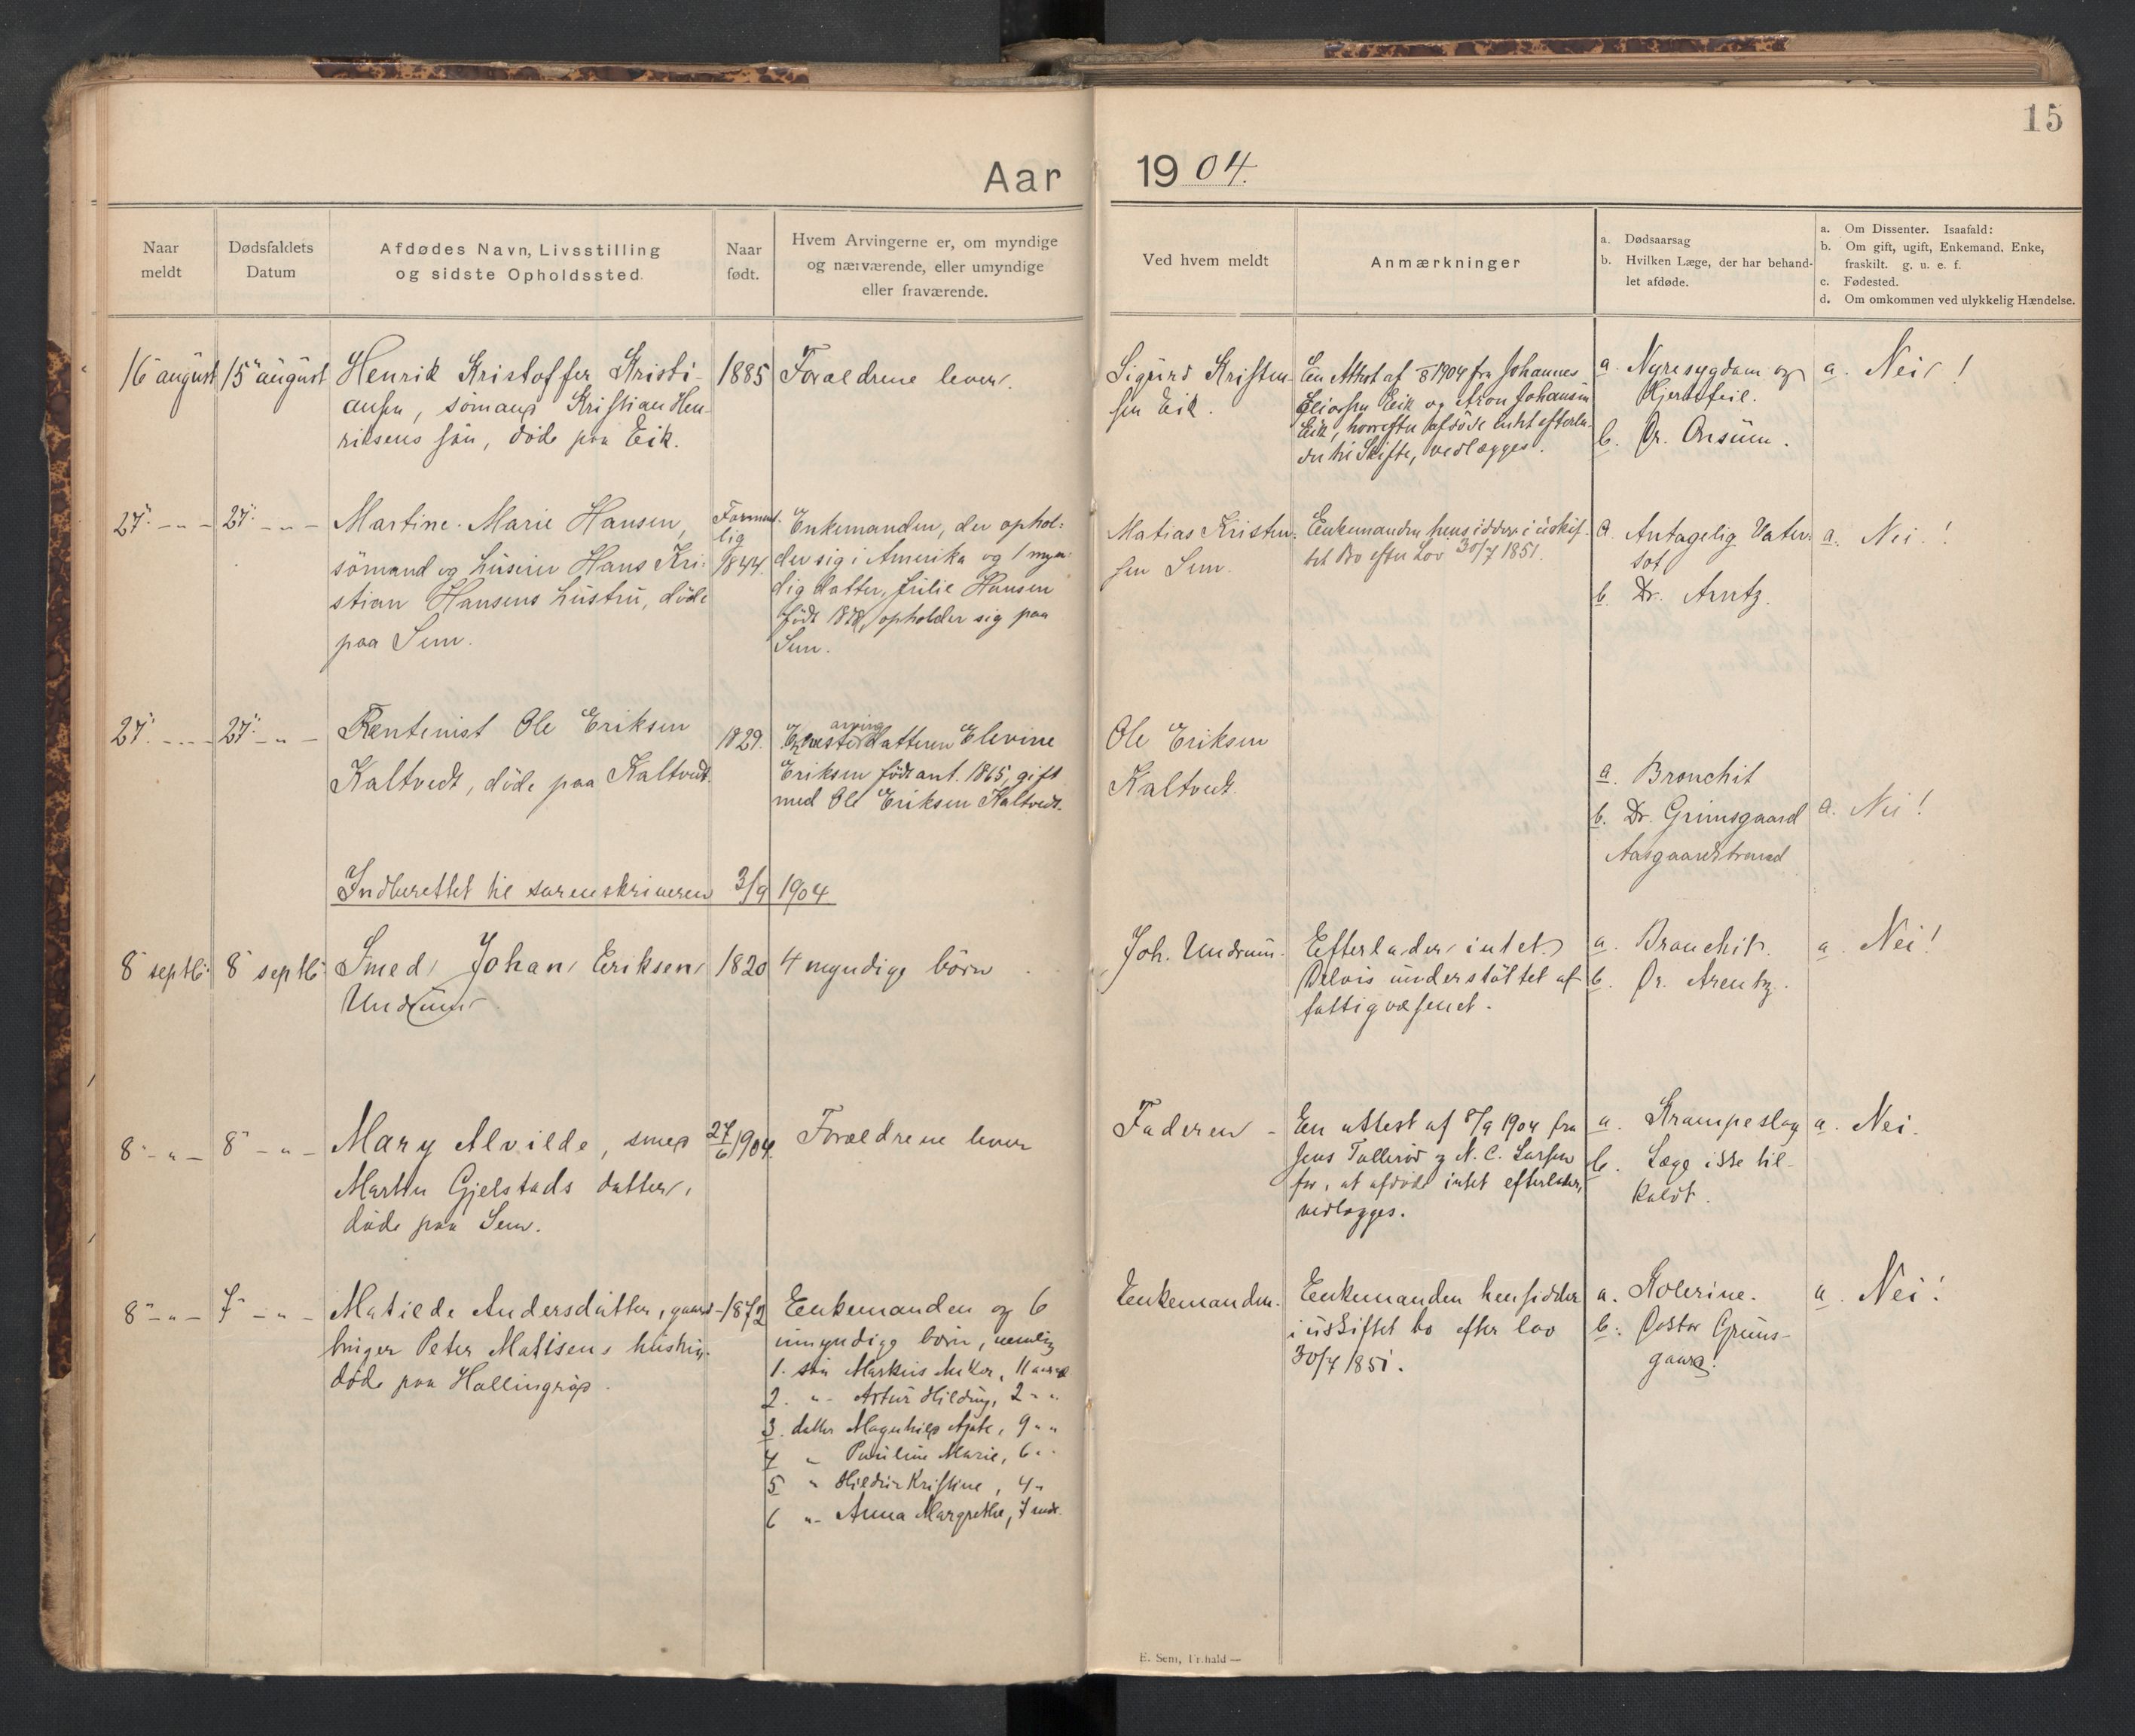 15
Aar 1904.
Naar
meldt
Dødsfaldets
Datum
Afdødes Navn, Livsstilling
og sidste Opholdssted.
Naar
født.
Hvem Arvingerne er, om myndige
og nærværende, eller umyndige
eller fraværende.
Ved hvem meldt
Anmærkninger
a. Dødsaarsag
b. Hvilken Læge, der har behand-
let afdøde.
a. Om Dissenter. Isaafald:
b. Om gift, ugift, Enkemand, Enke,
fraskilt. g. u. e. f.
c. Fødested.
d. Om omkommen ved ulykkelig Hændelse.
16 august
15 august
Henrik Kristoffer Kristi-
ansen, sömand Kristian Hen-
riksens sön, døde paa Eik.
1885
Forældrene lever.
Sigurd Kristen-
sen Eik.
En Attest af 1904 fra Johannes
Eik og Aron Johansen
Eik, hvorefter afdöde intet efterla-
der til Skifte, vedlægges.
a. Nyresygdom og
Hjertefeil.
b. Dr. Onsum.
a. Nei!
27 - " -
27 - " -
Martine Marie Hansen,
sömand og huseier Hans Kri-
stian Hansens hustru, døde
paa Sem.
Forment-
lig
1844.
Enkemanden, der ophol-
der sig i Amerika og 1 myn-
dig datter, Julie Hansen
født 1878, opholder sig paa
Sem.
Matias Kristen-
sen Sem.
Enkemanden hensidder i uskif-
tet Bo efter Lov 30/7 1851.
a. Antagelig Vater-
sot
b. Dr. Arntz.
a. Nei!
27 - " -
27 - " -
Rentenist Ole Eriksen
Kaltvedt, døde paa Kaltvedt.
1829.
arving
Eneste datteren Elevine
Eriksen født ant. 1865, gift
med Ole Eriksen Kaltvedt.
Ole Eriksen
Kaltvedt.
a. Bronchit
b. Dr. Grimsgaard
Aasgaardstrand
a. Nei!
Indberettet til sorenskriveren 3/9 1904
8 septb.
8 septb.
Smed Johan Eriksen
Undrum
1820
4 myndige börn
Joh. Undrum.
Efterlader intet.
Delvis understöttet af
fattigvæsenet.
a. Bronchit.
b. Dr. Arentz.
a. Nei!
8 - " -
8 - " -
Mary Alvilde, smed
Martin Gjelstads datter,
døde paa Sem.
27/6 1904.
Forældrene lever
Faderen -
En attest af 8/9 1904 fra
Jens Tallerød og N. C. Larsen
for, at afdöde intet efterlader,
vedlægges.
a. Krampeslag
b. Læge ikke til-
kaldt.
a. Nei.
8 - " -
7 - " -
Matilde Andersdatter, gaard-
bruger Peter Matisens hustru,
døde paa Hallingrød.
1872
Enkemanden og 6
umyndige börn, nemlig
1. sön Markus Anker, 11 aar
2. " Artur Hilding, 2 - "
3. datter Magnhild Agate, 9 - "
4 " Pauline Marie, 6 "
5 " Hildur Kristine, 4 "
6 " Anna Margrethe, 7 mdr.
Enkemanden.
Enkemanden hensidder
i uskiftet bo efter lov
30/7 1851.
a. Kolerine.
b. Doktor Grims-
gaard.
a. Nei!
E. Sem, Fr.hald —